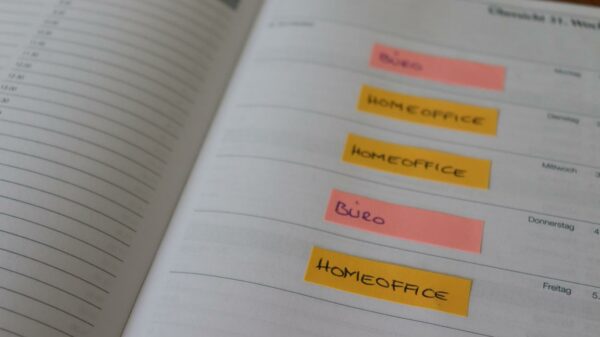 Übersicht 31. Woche
Montag
BÜRO
Dienstag
HOMEOFFICE
Mittwoch
HOMEOFFICE
Donnerstag 4.
BÜRO
Freitag 5.
HOMEOFFICE